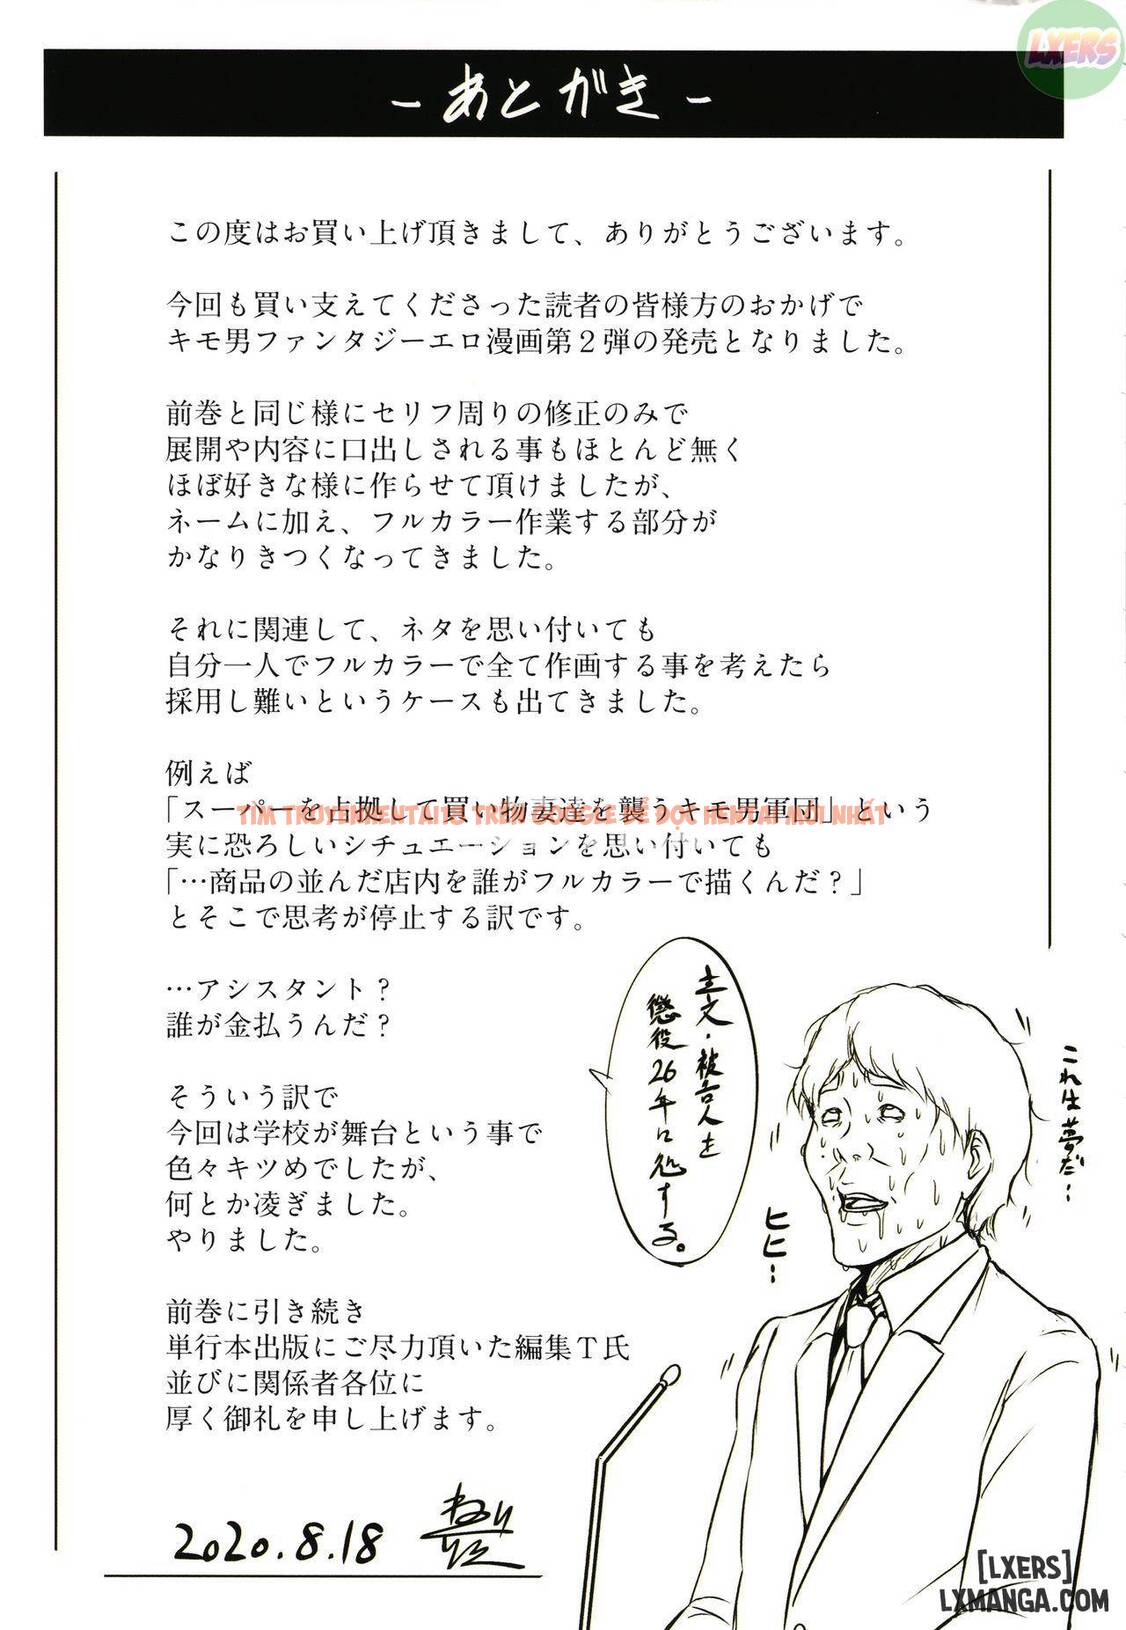 LXERS
- あとがき -
この度はお買い上げ頂きまして、ありがとうございます。
今回も買い支えてくださった読者の皆様方のおかげで
キモ男ファンタジーエロ漫画第２弾の発売となりました。
前巻と同じ様にセリフ周りの修正のみで
展開や内容に口出しされる事もほとんど無く
ほぼ好きな様に作らせて頂けましたが、
ネームに加え、フルカラー作業する部分が
かなりきつくなってきました。
それに関連して、ネタを思い付いても
自分一人でフルカラーで全て作画する事を考えたら
採用し難いというケースも出てきました。
例えば
「スーパーを占拠して買い物妻達を襲うキモ男軍団」という
TÌM TRUYENHENTAI18 TRÊN GOOGLE ĐỂ ĐỌC HENTAI MỚI NHẤT
実に恐ろしいシチュエーションを思い付いても
「…商品の並んだ店内を誰がフルカラーで描くんだ？」
とそこで思考が停止する訳です。
…アシスタント？
誰が金払うんだ？
そういう訳で
今回は学校が舞台という事で
色々キツめでしたが、
何とか凌ぎました。
やりました。
前巻に引き続き
単行本出版にご尽力頂いた編集Ｔ氏
並びに関係者各位に
厚く御礼を申し上げます。
2020.8.18
主文・被告人を
懲役26年に処する。
これは夢だ…
ヒヒ…
[LXERS]
LXMANGA.COM